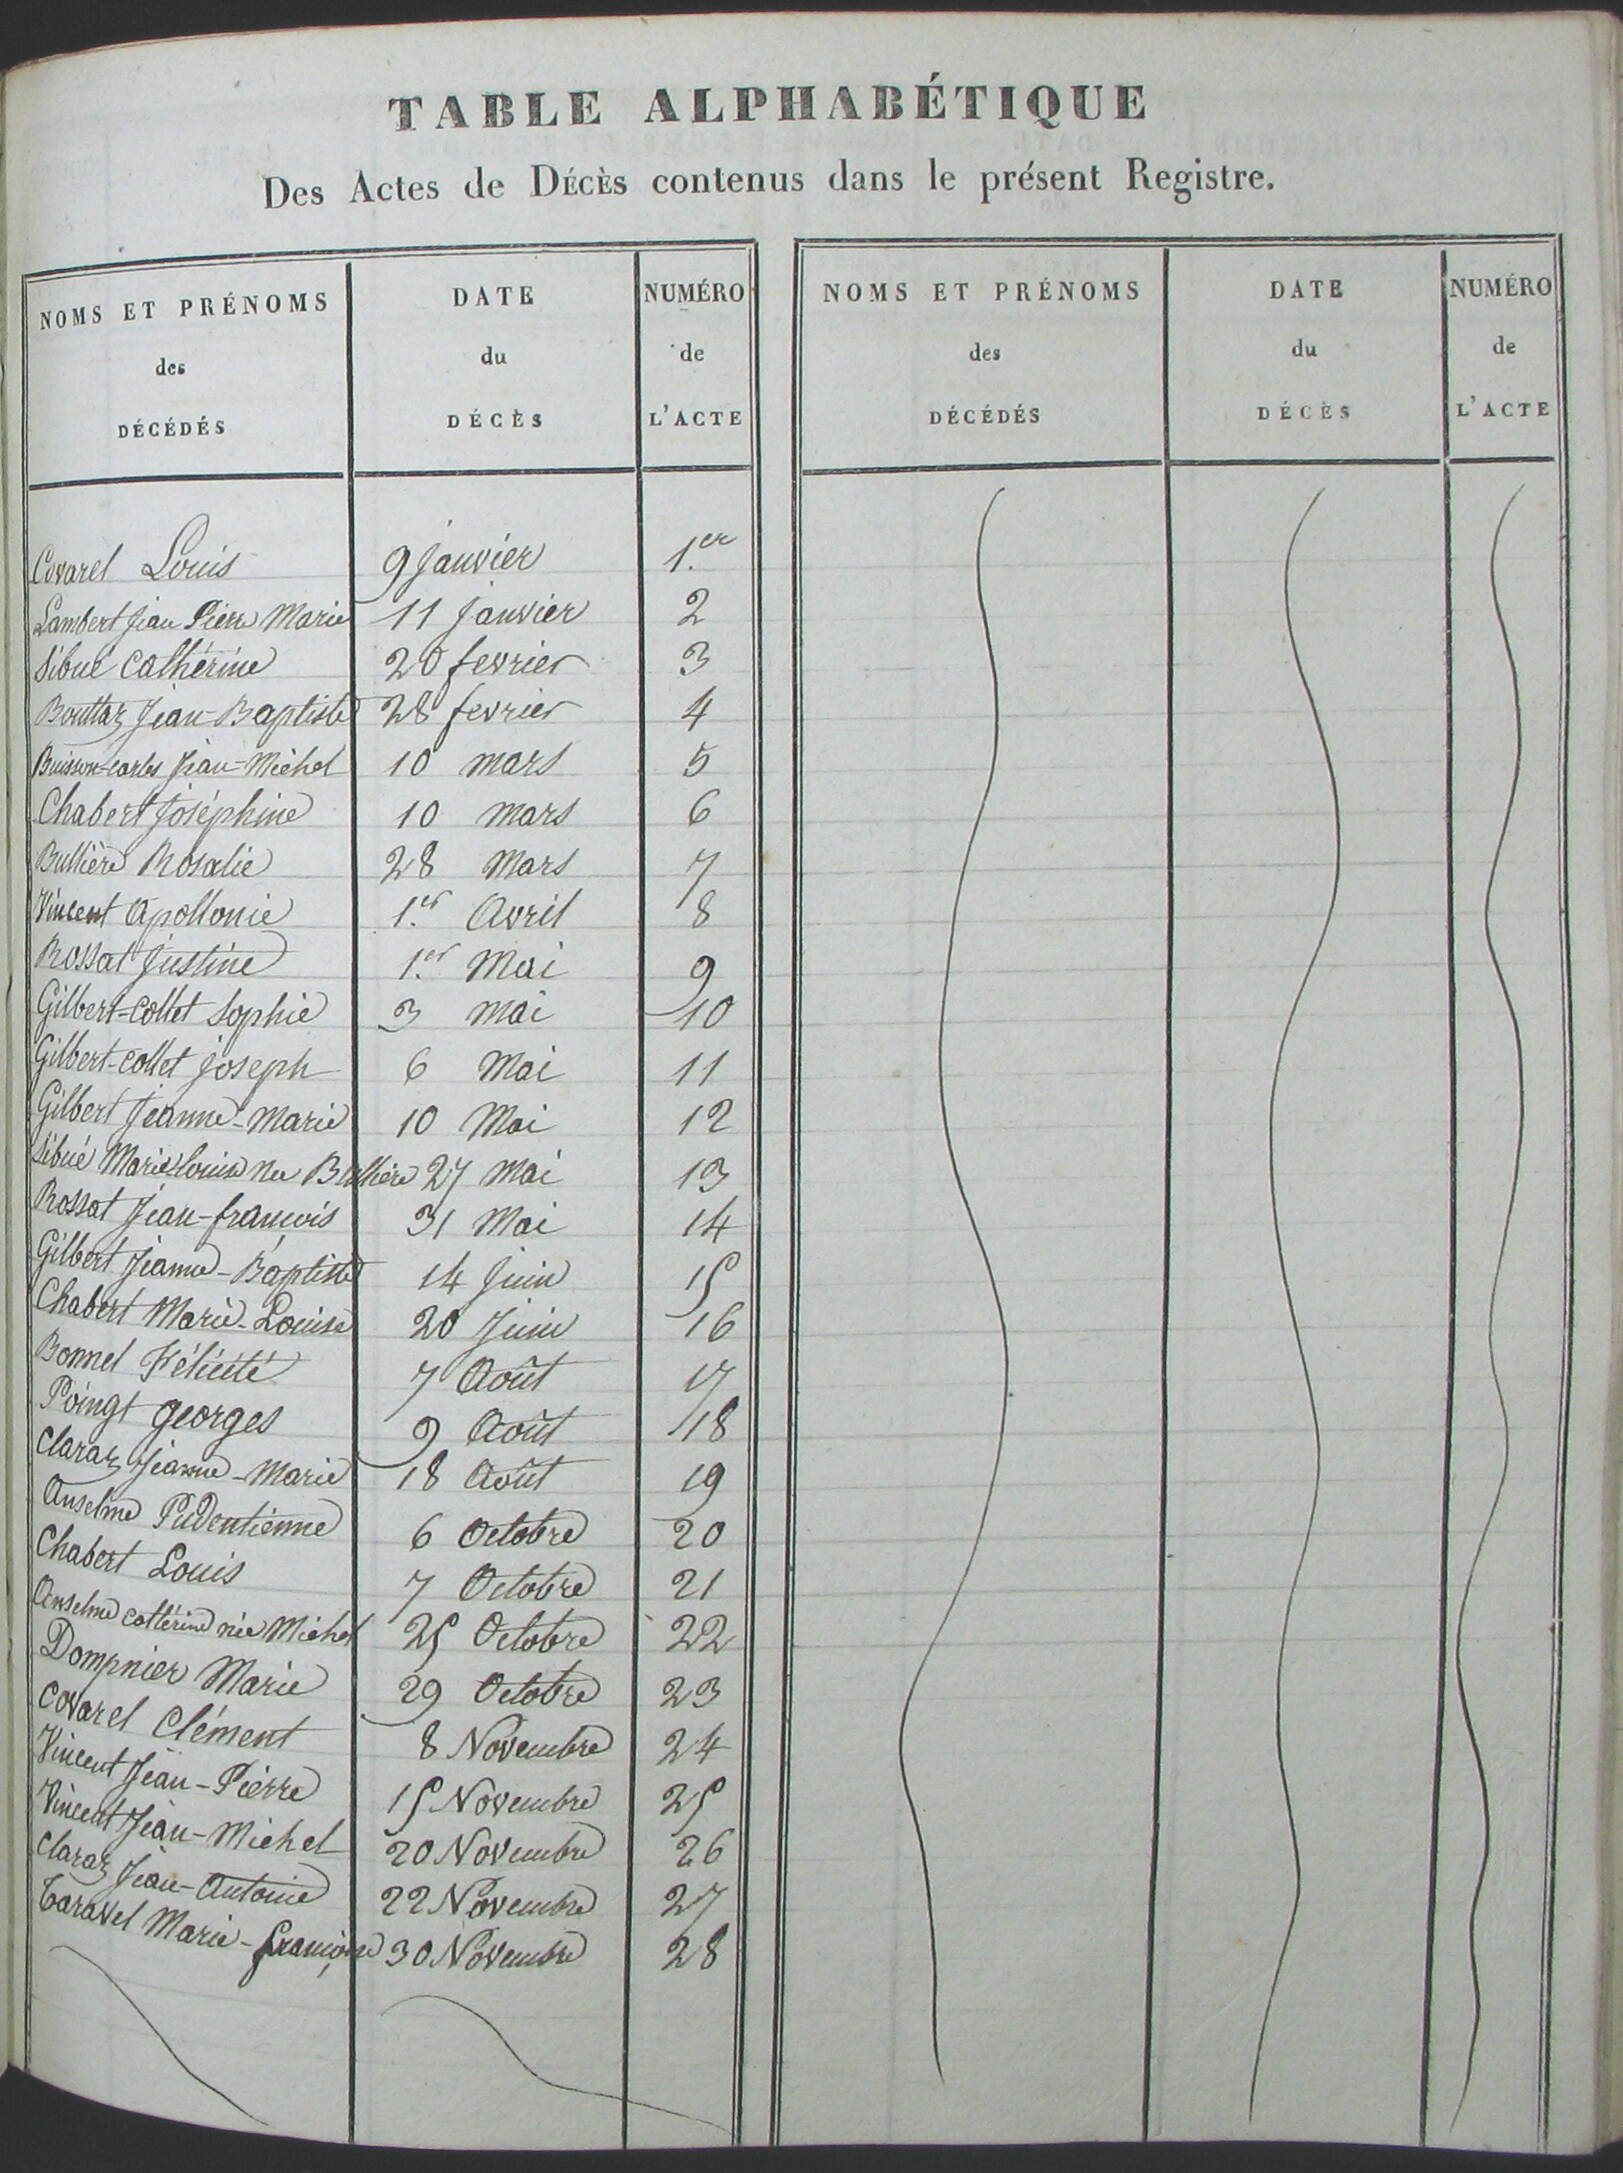 TABLE ALPHABÉTIQUE
Des Actes de DÉCÈS contenus dans le présent Registre.
NOMS ET PRÉNOMS DATE NUMÉRO NOMS ET PRÉNOMS DATE NUMÉRO
des du de des du de
DÉCÉDÉS DÉCÈS L'ACTE DÉCÉDÉS DÉCÈS L'ACTE
Covarel Louis 9 Janvier 1.er
Lambert Jean Pierre Marie 11 Janvier 2
Sibué Cathérine 20 fevrier 3
Bouttaz Jean-Baptiste 28 fevrier 4
Buisson-carles Jean-Michel 10 mars 5
Chabert Joséphine 10 mars 6
Bullière Rosalie 28 Mars 7
Vincent Apollonie 1.er Avril 8
Rossat Justine 1.er Mai 9
Gilbert-Collet Sophie 3 mai 10
Gilbert-Collet Joseph 6 Mai 11
Gilbert Jeanne-Marie 10 Mai 12
Sibué Marie-Louise née Bullière 27 Mai 13
Rossat Jean-françois 31 Mai 14
Gilbert Jeanne-Baptiste 14 Juin 15
Chabert Marie-Louise 20 Juin 16
Bonnel Félicité 7 Août 17
Poingt Georges 9 Août 18
Claraz Jeanne-Marie 18 Août 19
Anselme Pudentienne 6 Octobre 20
Chabert Louis 7 Octobre 21
Anselme Cattérine née Michel 25 Octobre 22
Dompnier Marie 29 Octobre 23
Covarel Clément 8 Novembre 24
Vincent Jean-Pierre 15 Novembre 25
Vincent Jean-Michel 20 Novembre 26
Claraz Jean-Antoine 22 Novembre 27
Taravel Marie-françoise 30 Novembre 28